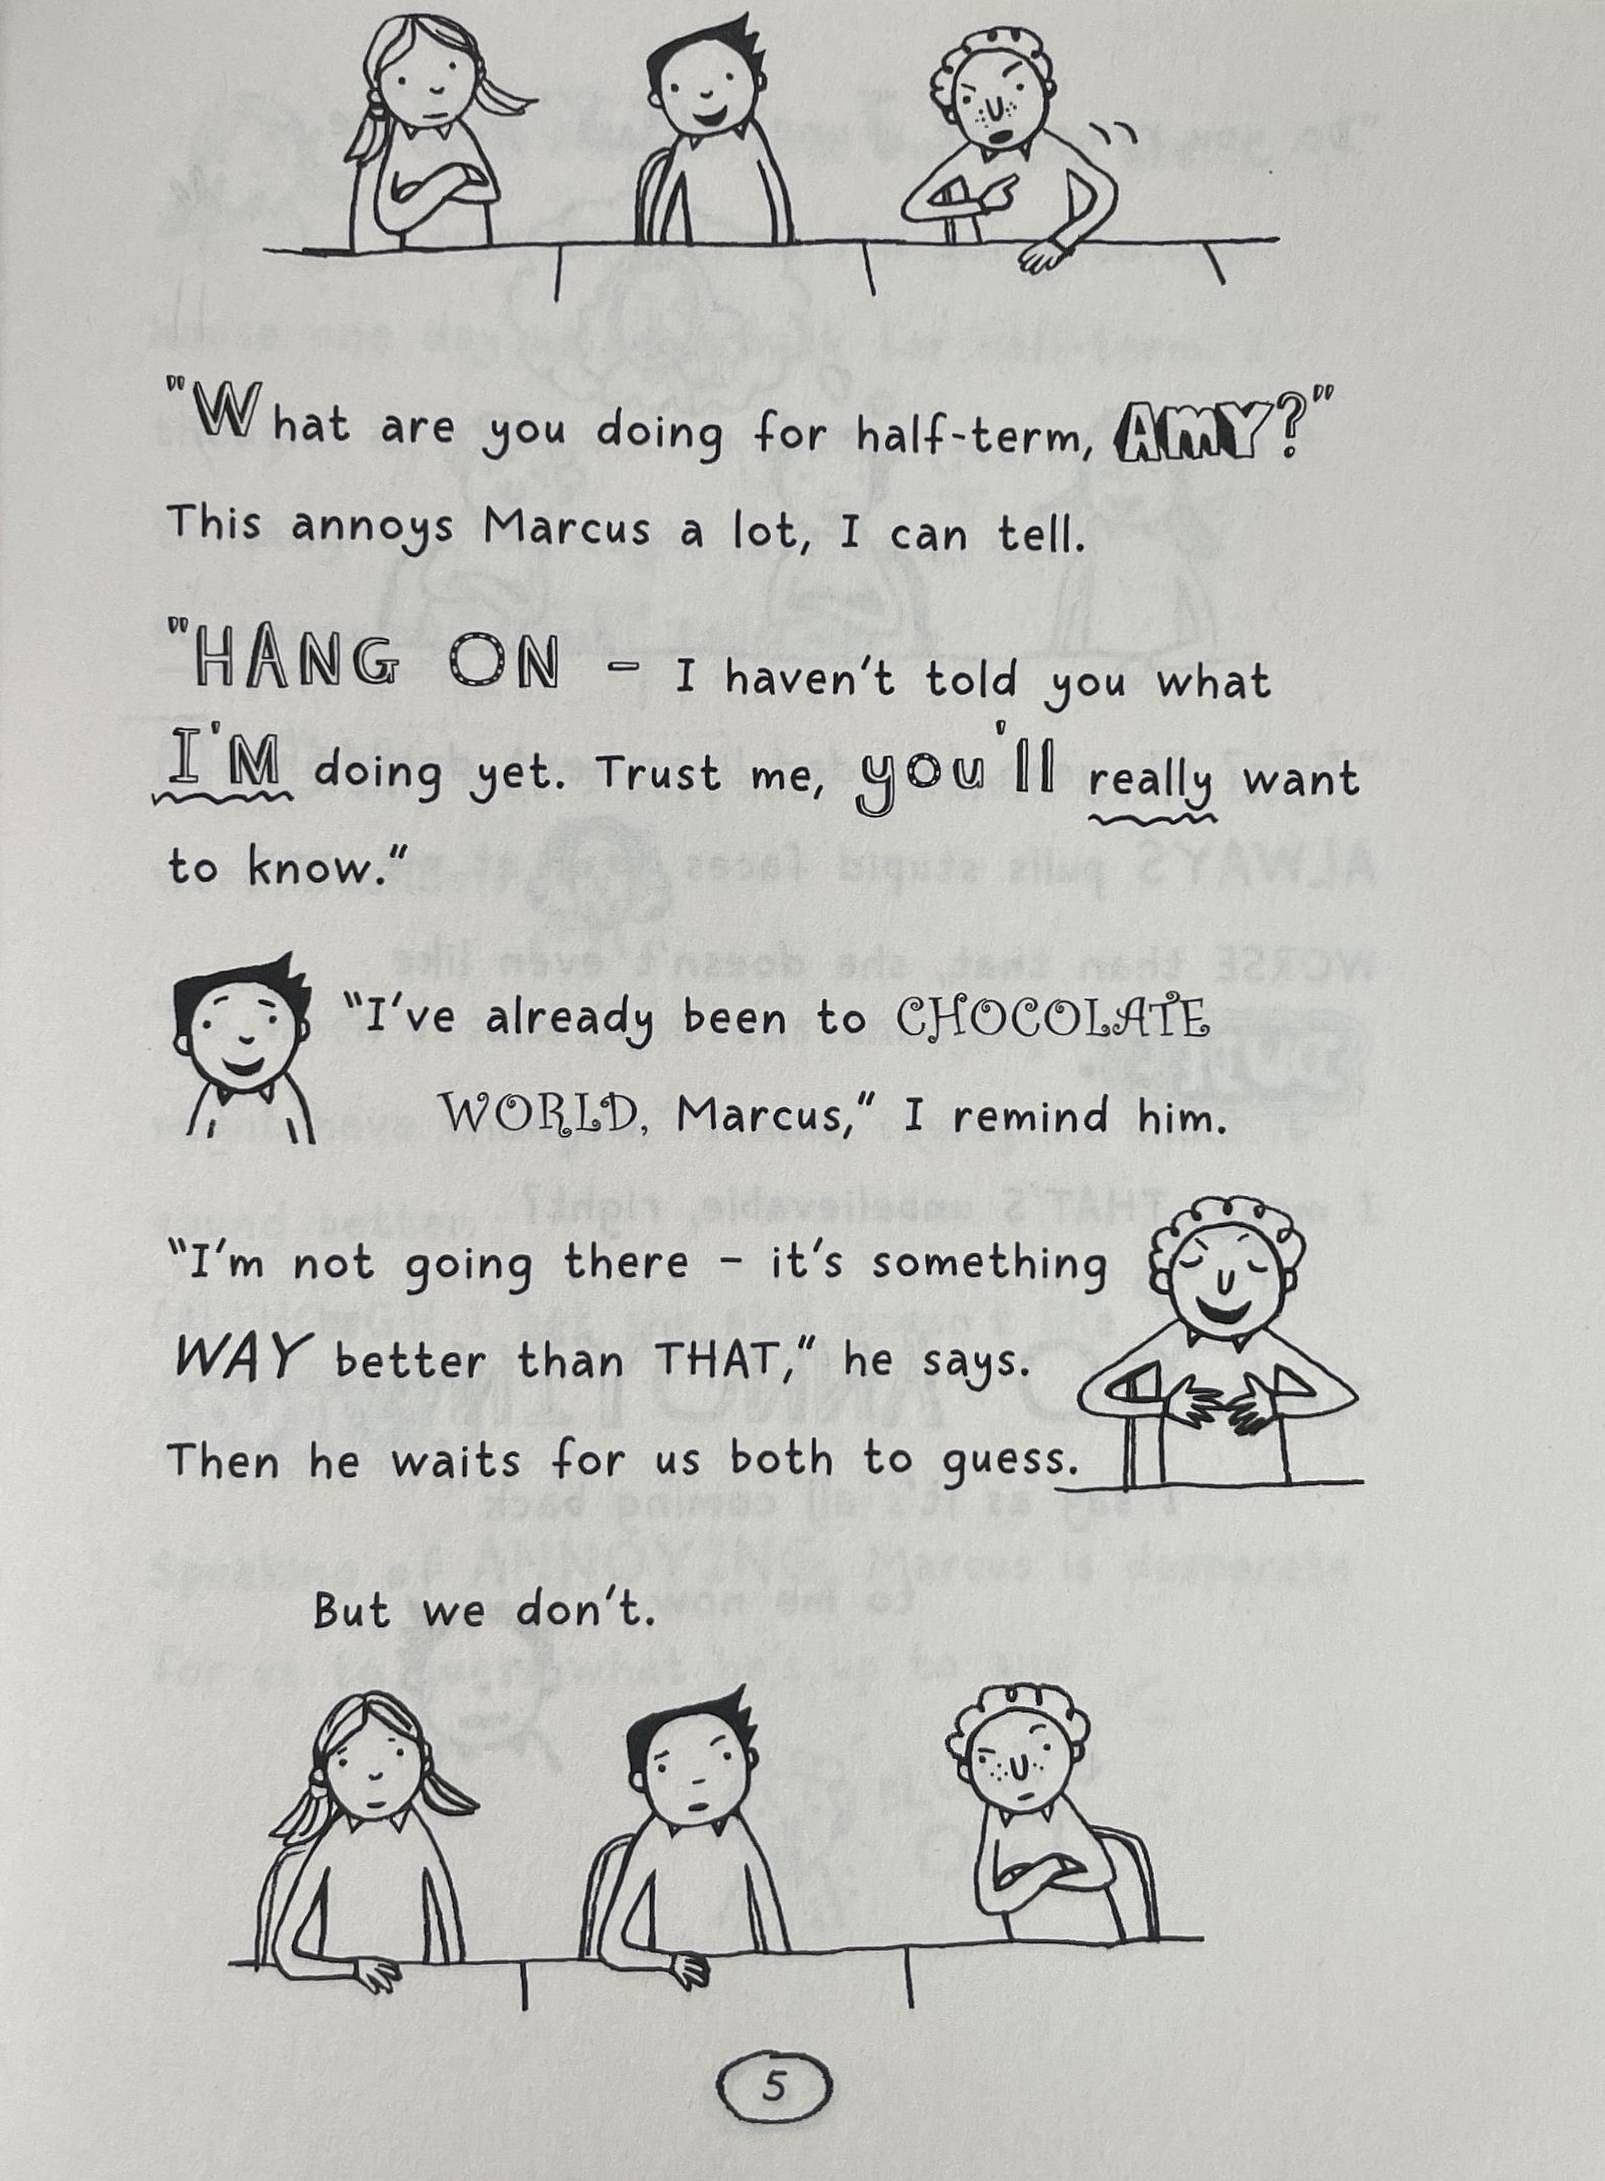 "What are you doing for half-term, AMY?"
This annoys Marcus a lot, I can tell.
"HANG ON – I haven't told you what
I'M doing yet. Trust me, you'll really want
to know."
"I've already been to CHOCOLATE
WORLD, Marcus," I remind him.
"I'm not going there – it's something
WAY better than THAT," he says.
Then he waits for us both to guess.
But we don't.
5